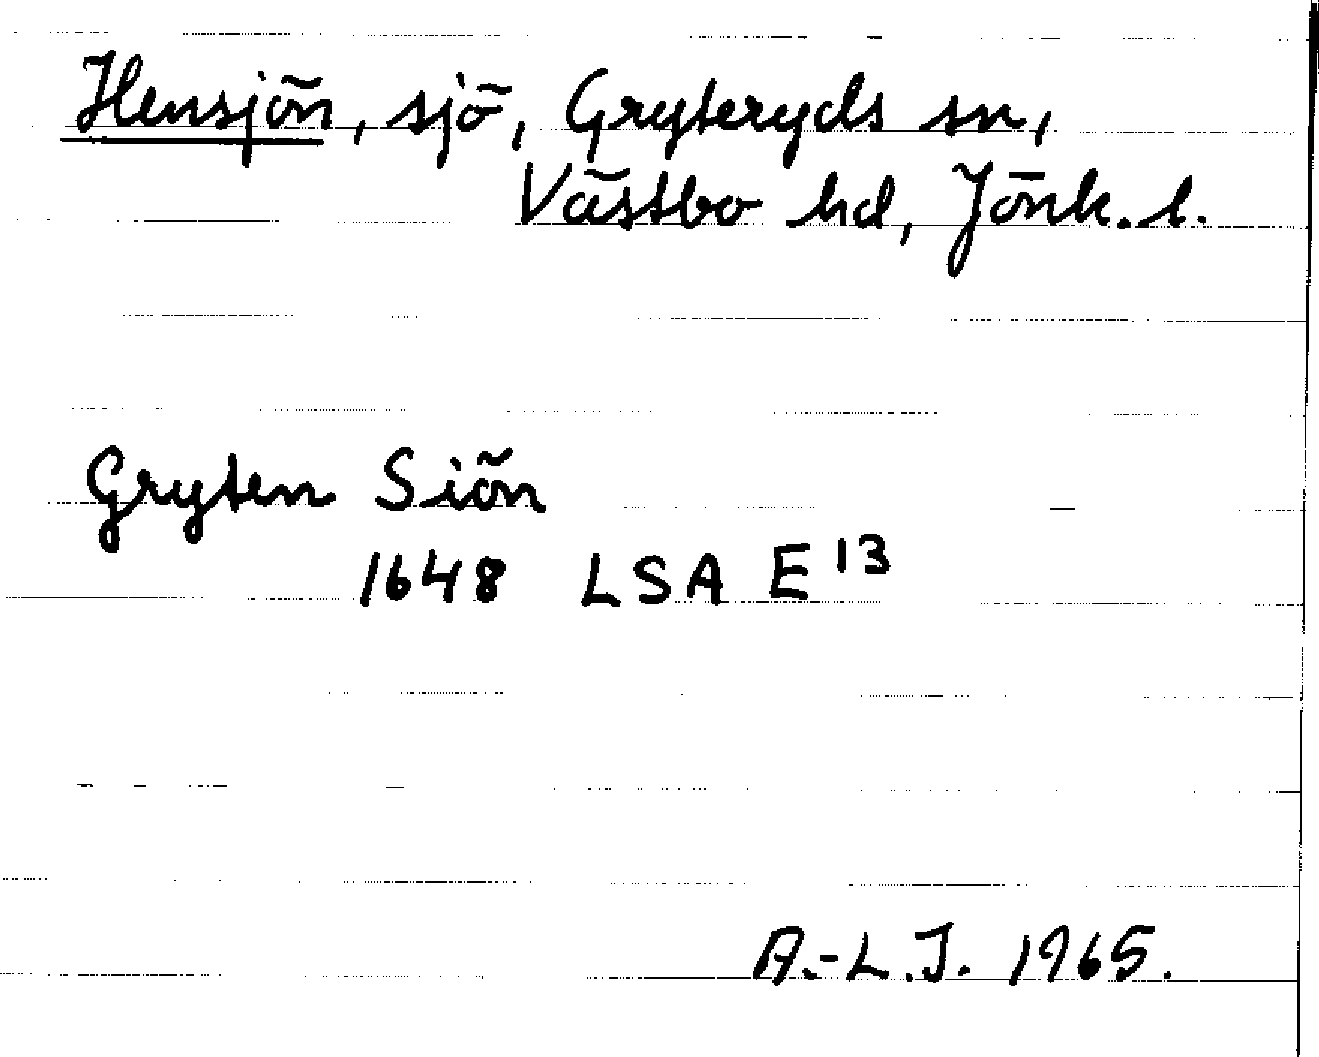 Hensjön, sjö, Gryteryds sn,
Västbo hd, Jönk. l.
Gryten Siön
1648 LSA E 13
A.-L.J. 1965.